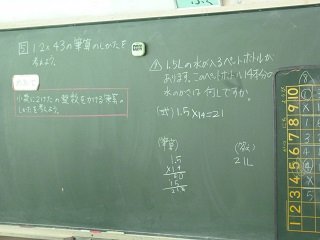 1.2×43の筆算のしかたを
考えよう。
めあて
小数に2けたの整数をかける筆算の
しかたを考えよう。
1.5Lの水が入るペットボトルが
あります。このペットボトル14本分の
水のかさは何Lですか。
(式) 1.5×14=21
(筆算)
1.5
×14
60
15
21.0
(答え)
21L
10
9
8
7
6
5
4
3
2
1